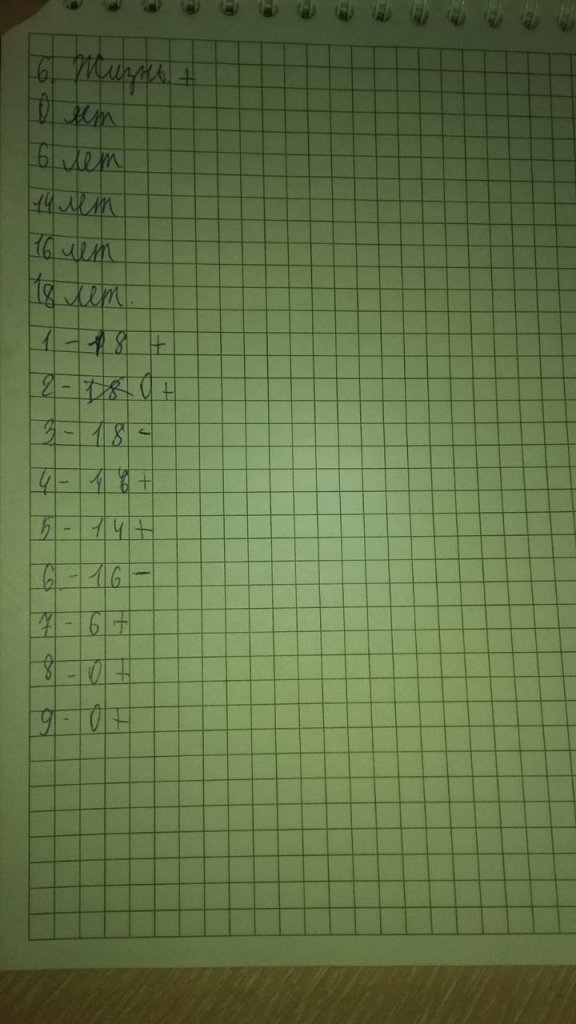 6. Жизнь +
0 лет
6 лет
14 лет
16 лет
18 лет.
1 - 18 +
2 - 18 0 +
3 - 18 -
4 - 16 +
5 - 14 +
6 - 16 -
7 - 6 +
8 - 0 +
9 - 0 +